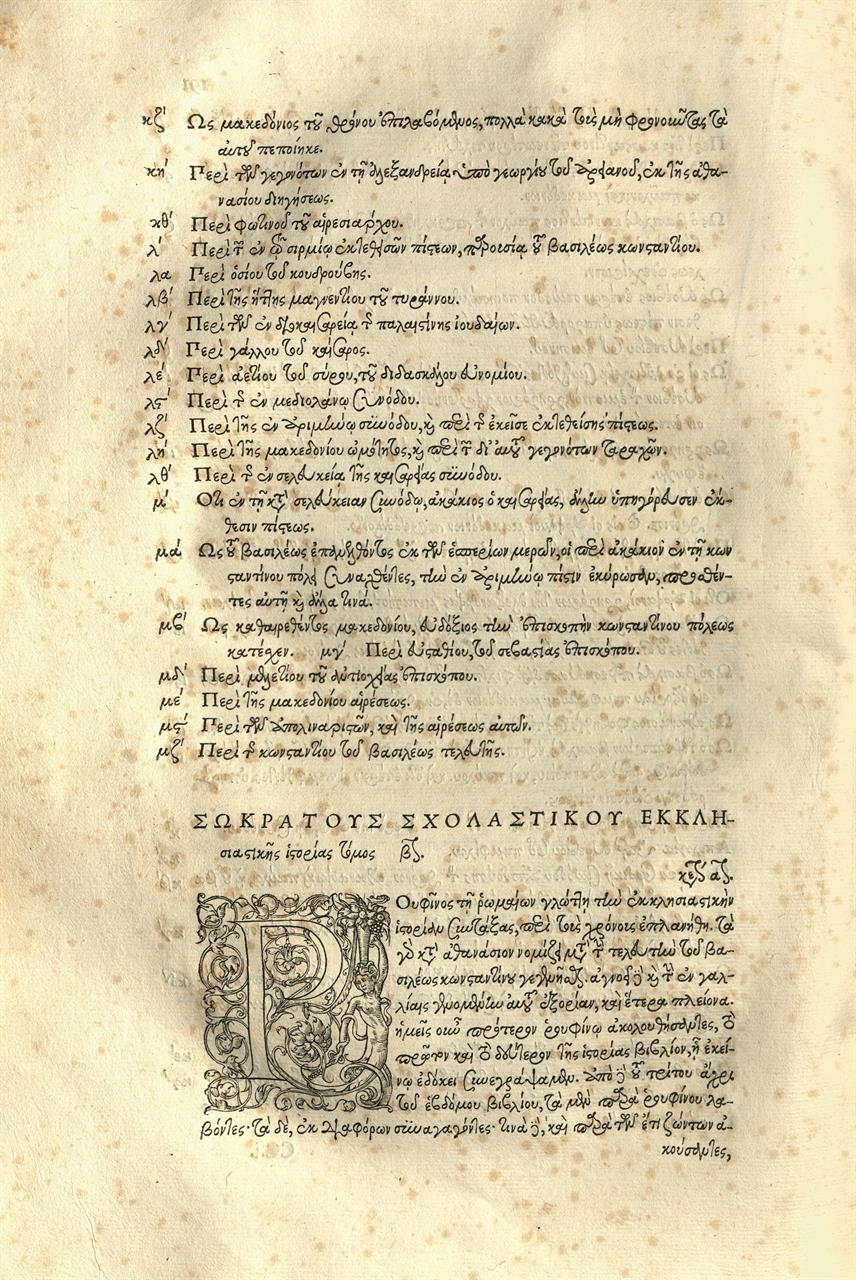 κζ΄ Ὡς μακεδόνιος τοῦ θρόνου ἐπιλαβόμενος, πολλὰ κακὰ τοὺς μὴ φρονοῦντας τὰ
αὐτοῦ πεποίηκε.
κη΄ Περὶ τῶν γεγονότων ἐν τῇ ἀλεξανδρείᾳ ὑπὸ γεωργίου τοῦ ἀρειανοῦ, ἐκ τῆς ἀθα-
νασίου διηγήσεως.
κθ΄ Περὶ φωτινοῦ τοῦ αἱρεσιάρχου.
λ΄ Περὶ τῶν ἐν τῷ σιρμίῳ ἐκτεθεισῶν πίστεων, παρουσίᾳ τοῦ βασιλέως κωνσταντίου.
λα Περὶ ὁσίου τοῦ κουδρούβης.
λβ΄ Περὶ τῆς ἥττης μαγνεντίου τοῦ τυράννου.
λγ΄ Περὶ τῶν ἐν διοκαισαρείᾳ τῆς παλαιστίνης ἰουδαίων.
λδ΄ Περὶ γάλλου τοῦ καίσαρος.
λε΄ Περὶ ἀετίου τοῦ σύρου, τοῦ διδασκάλου εὐνομίου.
λϛ΄ Περὶ τῆς ἐν μεδιολάνῳ συνόδου.
λζ΄ Περὶ τῆς ἐν ἀριμίνῳ συνόδου, καὶ περὶ τῆς ἐκεῖσε ἐκτεθείσης πίστεως.
λη΄ Περὶ τῆς μακεδονίου ὠμότητος, καὶ περὶ τῶν δι' αὐτοῦ γεγονότων ταραχῶν.
λθ΄ Περὶ τῆς ἐν σελευκείᾳ τῆς καισαρείας συνόδου.
μ΄ Ὅτι ἐν τῇ κατὰ σελεύκειαν συνόδῳ, ἀκάκιος ὁ καισαρείας, ἄλλην ὑπηγόρευσεν ἔκ-
θεσιν πίστεως.
μα΄ Ὡς τοῦ βασιλέως ἐπανελθόντος ἐκ τῶν ἑσπερίων μερῶν, οἱ περὶ ἀκάκιον ἐν τῇ κων
σταντίνου πόλει συναχθέντες, τὴν ἐν ἀριμίνῳ πίστιν ἐκύρωσαν, προσθέν-
τες αὐτῇ καὶ ἄλλα τινά.
μβ΄ Ὡς καθαιρεθέντος μακεδονίου, εὐδόξιος τὴν ἐπισκοπὴν κωνσταντίνου πόλεως
κατέσχεν. μγ΄ Περὶ εὐσταθίου, τοῦ σεβαστίας ἐπισκόπου.
μδ΄ Περὶ μελετίου τοῦ ἀντιοχείας ἐπισκόπου.
με΄ Περὶ τῆς μακεδονίου αἱρέσεως.
μϛ΄ Περὶ τῶν ἀπολιναριστῶν, καὶ τῆς αἱρέσεως αὐτῶν.
μζ΄ Περὶ τῆς κωνσταντίου τοῦ βασιλέως τελευτῆς.
ΣΩΚΡΑΤΟΥΣ ΣΧΟΛΑΣΤΙΚΟΥ ΕΚΚΛΗ-
σιαστικῆς ἱστορίας τόμος β΄.
κεφ. α΄.
ΡΟυφῖνος τῇ ῥωμαίων γλώττῃ τὴν ἐκκλησιαστικὴν
ἱστορίαν συντάξας, περὶ τοὺς χρόνους ἐπλανήθη. τὰ
γὰρ κατὰ ἀθανάσιον νομίζει μετὰ τὴν τελευτὴν τοῦ βα-
σιλέως κωνσταντίνου γεγενῆσθαι. ἀγνοεῖ δὲ καὶ τὴν ἐν γαλ-
λίαις γενομένην αὐτοῦ ἐξορίαν, καὶ ἕτερα πλείονα.
ἡμεῖς οὖν πρότερον ῥουφίνῳ ἀκολουθήσαντες, τὸ
πρῶτον καὶ τὸ δεύτερον τῆς ἱστορίας βιβλίον, ᾗ ἐκεί-
νῳ ἐδόκει συνεγράψαμεν. ἀπὸ δὲ τοῦ τρίτου ἄχρι
τοῦ ἑβδόμου βιβλίου, τὰ μὲν παρὰ ῥουφίνου λα-
βόντες· τὰ δὲ, ἐκ διαφόρων συναγαγόντες· τινὰ δὲ, καὶ παρὰ τῶν ἔτι ζώντων ἀ-
κούσαντες,